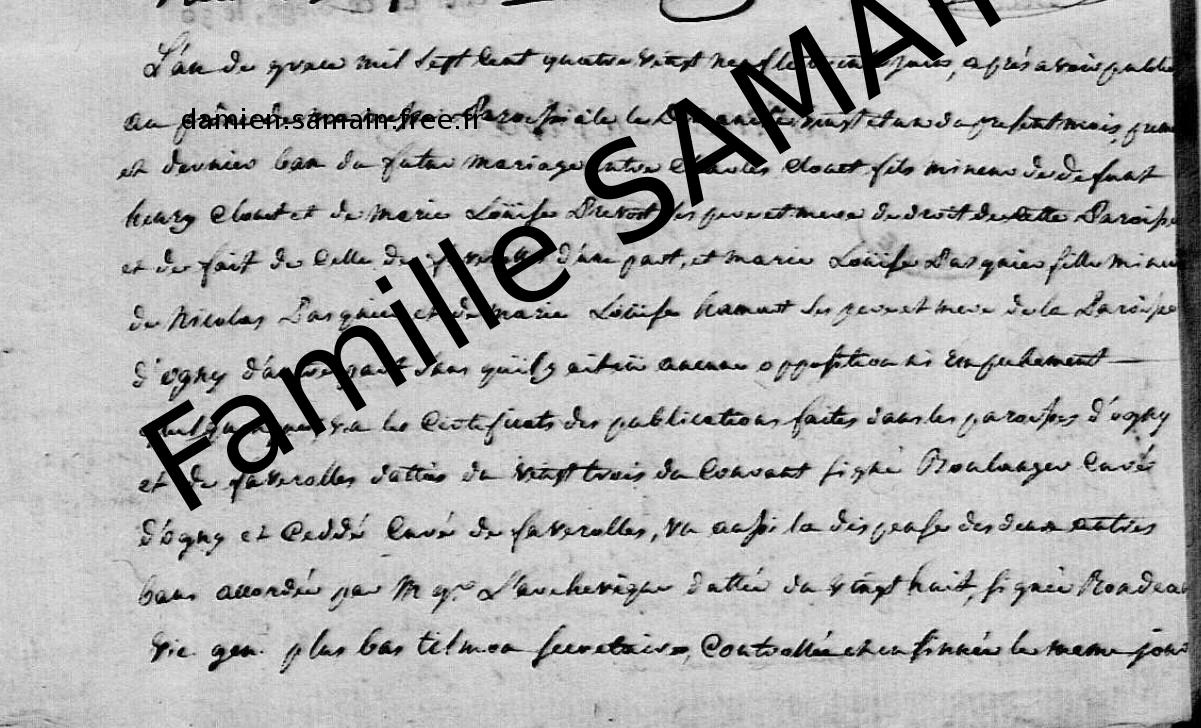 L'an de grace mil sept cent quatre vingt neuf le trente juin, après avoir publié
au prône de Paroissiale le Dimanche vingt et un du present mois, premier
et dernier ban du futur mariage entre Charles Clouet fils mineur de defunt
henry Clouet et de marie Loüise Prevost ses pere et mere de droit de cette Paroisse
et de fait de Celle de faverolles d'une part, et marie Loüise Pasquier fille mineure
de Nicolas Pasquier et de marie Loüise hamant ses pere et mere de la Paroisse
d'ogny d'autre part sans qu'il y ait eü aucune opposition ni Empechement
vu les Certificats des publications faites dans les paroisses d'ogny
et de faverolles dattés du vingt trois du Courant signé Boulanger Curé
d'ogny et Ceddé Curé de faverolles, vu aussi la dispense des deux autres
bans accordée par Mgr L'archevêque dattée du vingt huit, signée Rondeau
vic. gen. plus bas tilmon secretaire, Controllée et insinuée le meme jour
damien.samain.free.fr
Famille SAMAIN